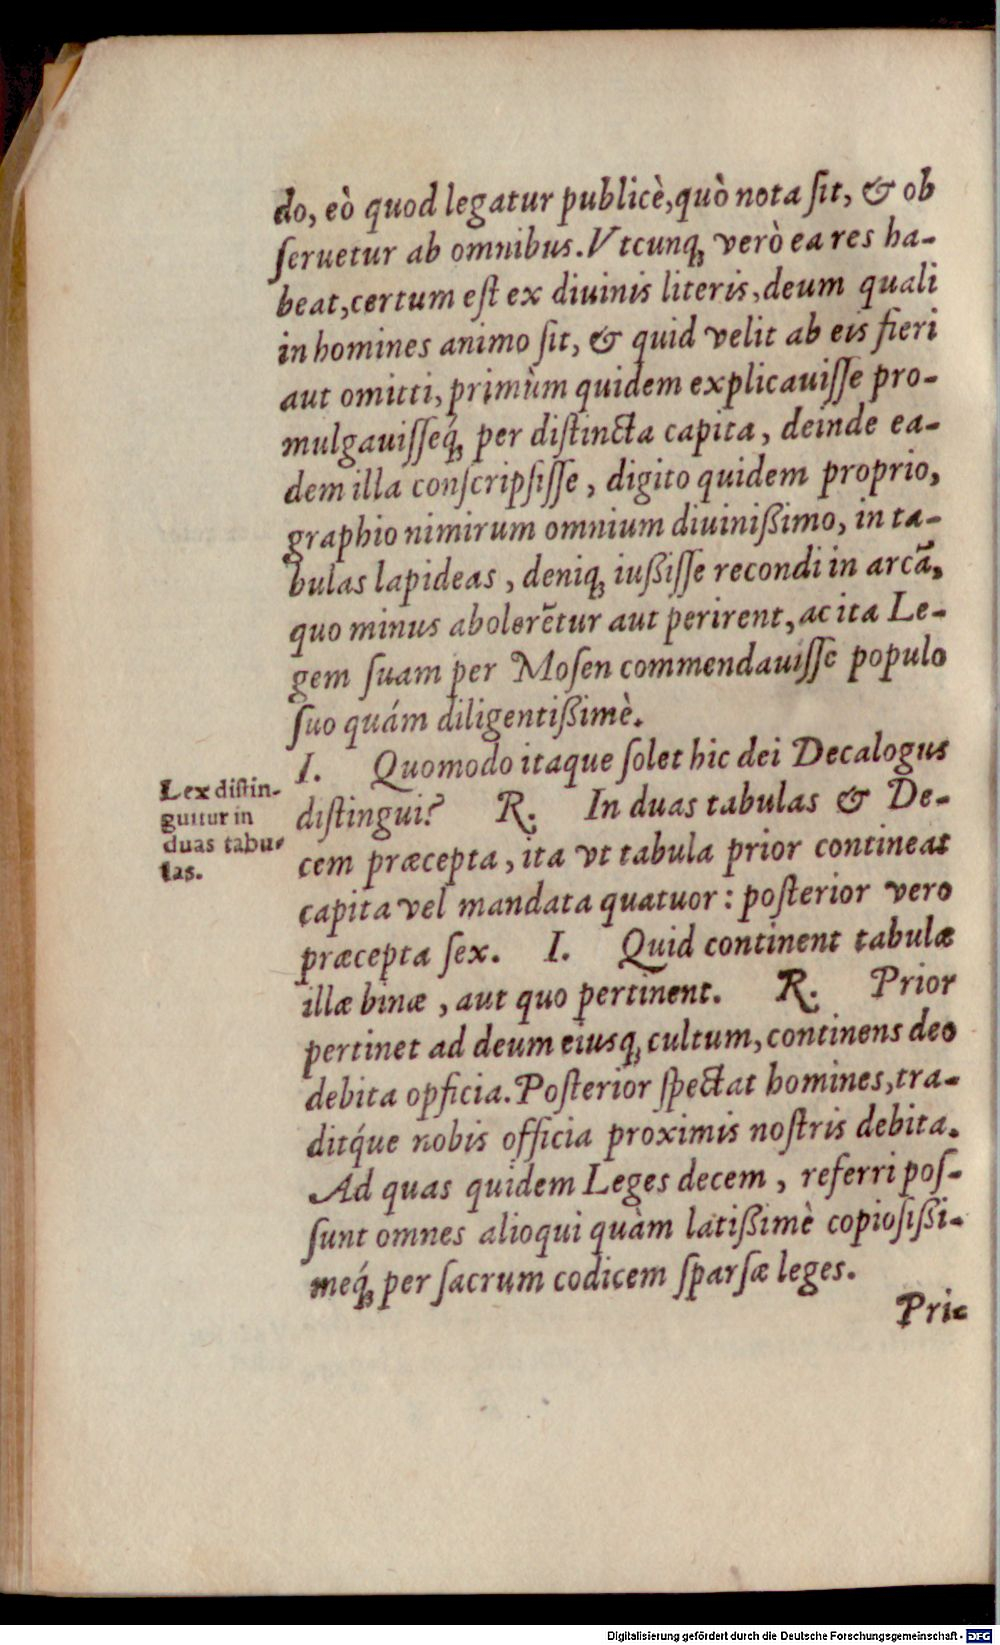 do, eò quod legatur publicè, quò nota ſit, & ob
ſeruetur ab omnibus. Vtcunq; verò ea res ha-
beat, certum eſt ex diuinis literis, deum quali
in homines animo ſit, & quid velit ab eis fieri
aut omitti, primùm quidem explicauiſſe pro-
mulgauiſſeq́; per diſtincta capita, deinde ea-
dem illa conſcripſiſſe, digito quidem proprio,
graphio nimirum omnium diuinißimo, in ta-
bulas lapideas, deniq; iußiſſe recondi in arcā,
quo minus abolerētur aut perirent, ac ita Le-
gem ſuam per Moſen commendauiſſe populo
ſuo quám diligentißimè.
I. Quomodo itaque ſolet hic dei Decalogus
Lex diſtin-
guitur in
duas tabu-
las.
diſtingui? R. In duas tabulas & De-
cem præcepta, ita vt tabula prior contineat
capita vel mandata quatuor: poſterior vero
præcepta ſex. I. Quid continent tabulæ
illæ binæ, aut quo pertinent. R. Prior
pertinet ad deum eiusq; cultum, continens deo
debita opficia. Poſterior ſpectat homines, tra-
ditq́ue nobis officia proximis noſtris debita.
Ad quas quidem Leges decem, referri poſ-
ſunt omnes alioqui quàm latißimè copioſißi-
meq́; per ſacrum codicem ſparſæ leges.
Pri-
Digitalisierung gefördert durch die Deutsche Forschungsgemeinschaft - DFG